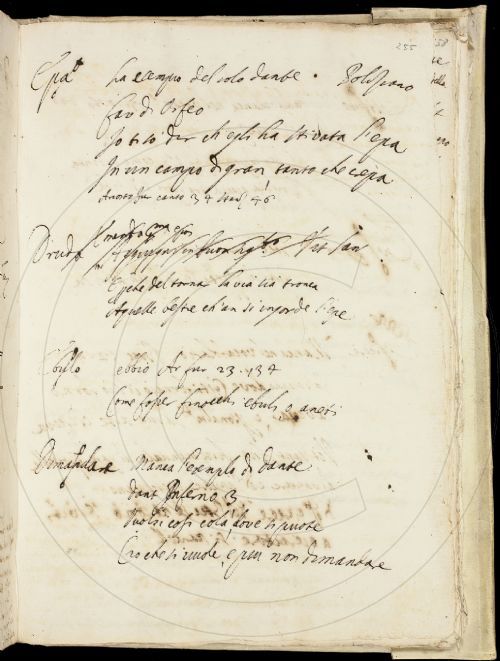 255
Epa ha esempio del solo dante. Poliziano
fav di Orfeo
Io ti so dir ch egli ha stivata l'epa
In un campo di gran tanto che crepa
Ariosto fur canto 34 stanz. 46
Druda
E perché del tornar la via sia tronca
A quelle bestie ch'an sì ingorde l'epe
Ebulo ebbio Ar fur 23. 134
Come fosser finocchi ebuli, o aneti
Dimandare Manca l'esempio di dante
dant Inferno 3
Vuolsi così colà, dove si puote
Ciò che si vuole, e più non dimandare